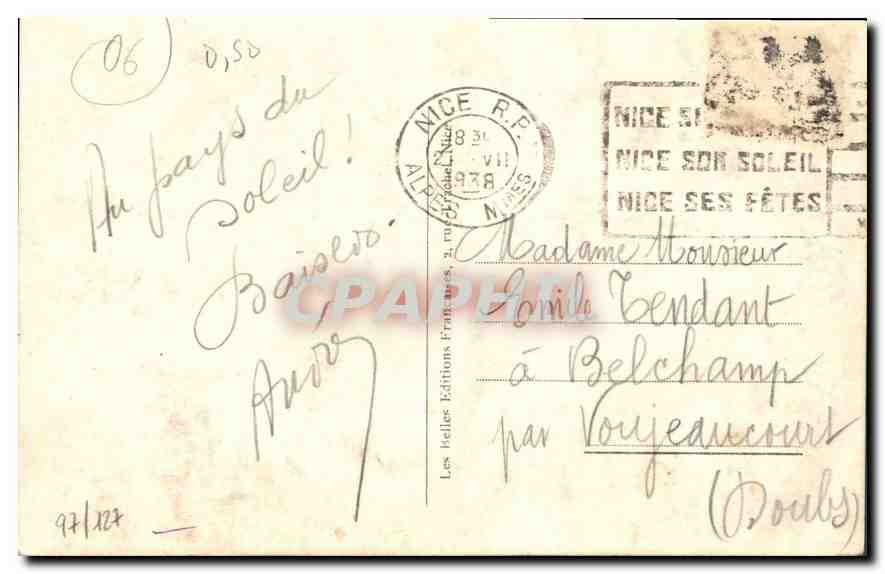 06
0,50
Au pays du
soleil!
Baisers.
André
97/127
Les Belles Editions Françaises, 2, rue
NICE R.P.
8 30
VII
1938
ALPES MMES
NICE
NICE SON SOLEIL
NICE SES FÊTES
Madame Monsieur
Emile Tendant
à Belchamp
par Voujeaucourt
(Doubs)
CPAPHIL